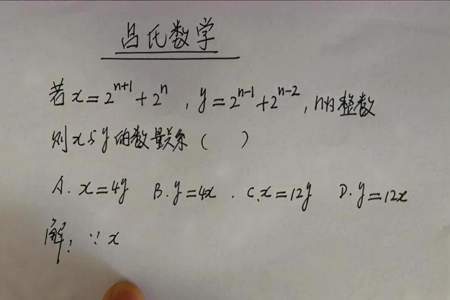 吕氏数学
若x=2ⁿ⁺¹+2ⁿ,y=2ⁿ⁻¹+2ⁿ⁻²,n为整数
则x与y的数量关系( )
A. x=4y B. y=4x . C. x=12y D. y=12x
解:∵x